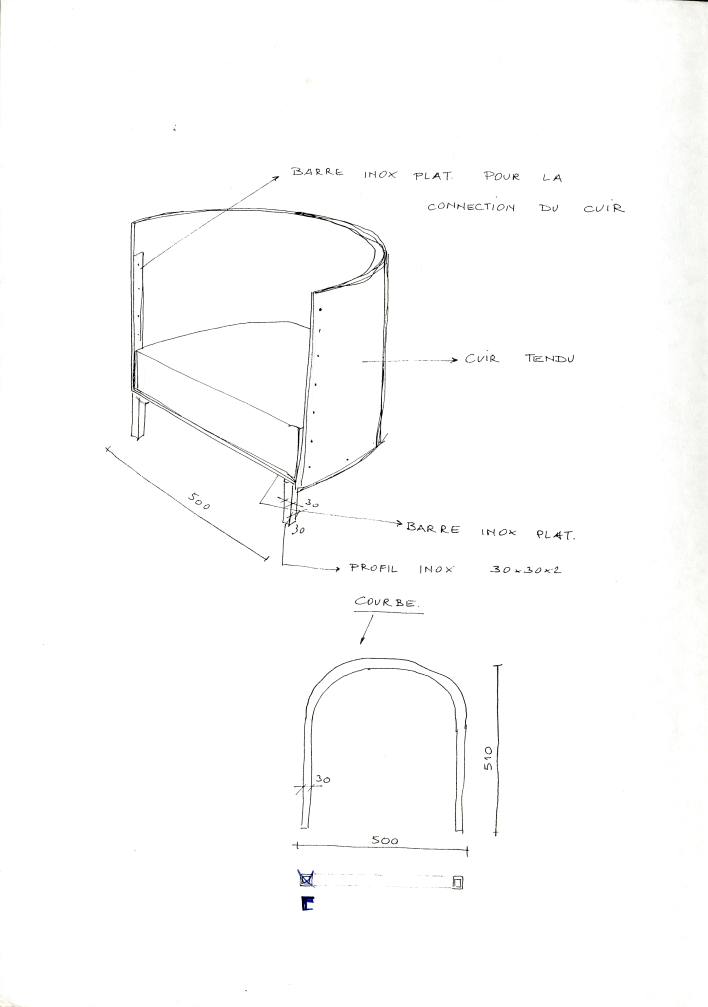 BARRE INOX PLAT. POUR LA
CONNECTION DU CUIR
CUIR TENDU
500
30
30
BARRE INOX PLAT.
PROFIL INOX 30x30x2
COURBE.
30
510
500